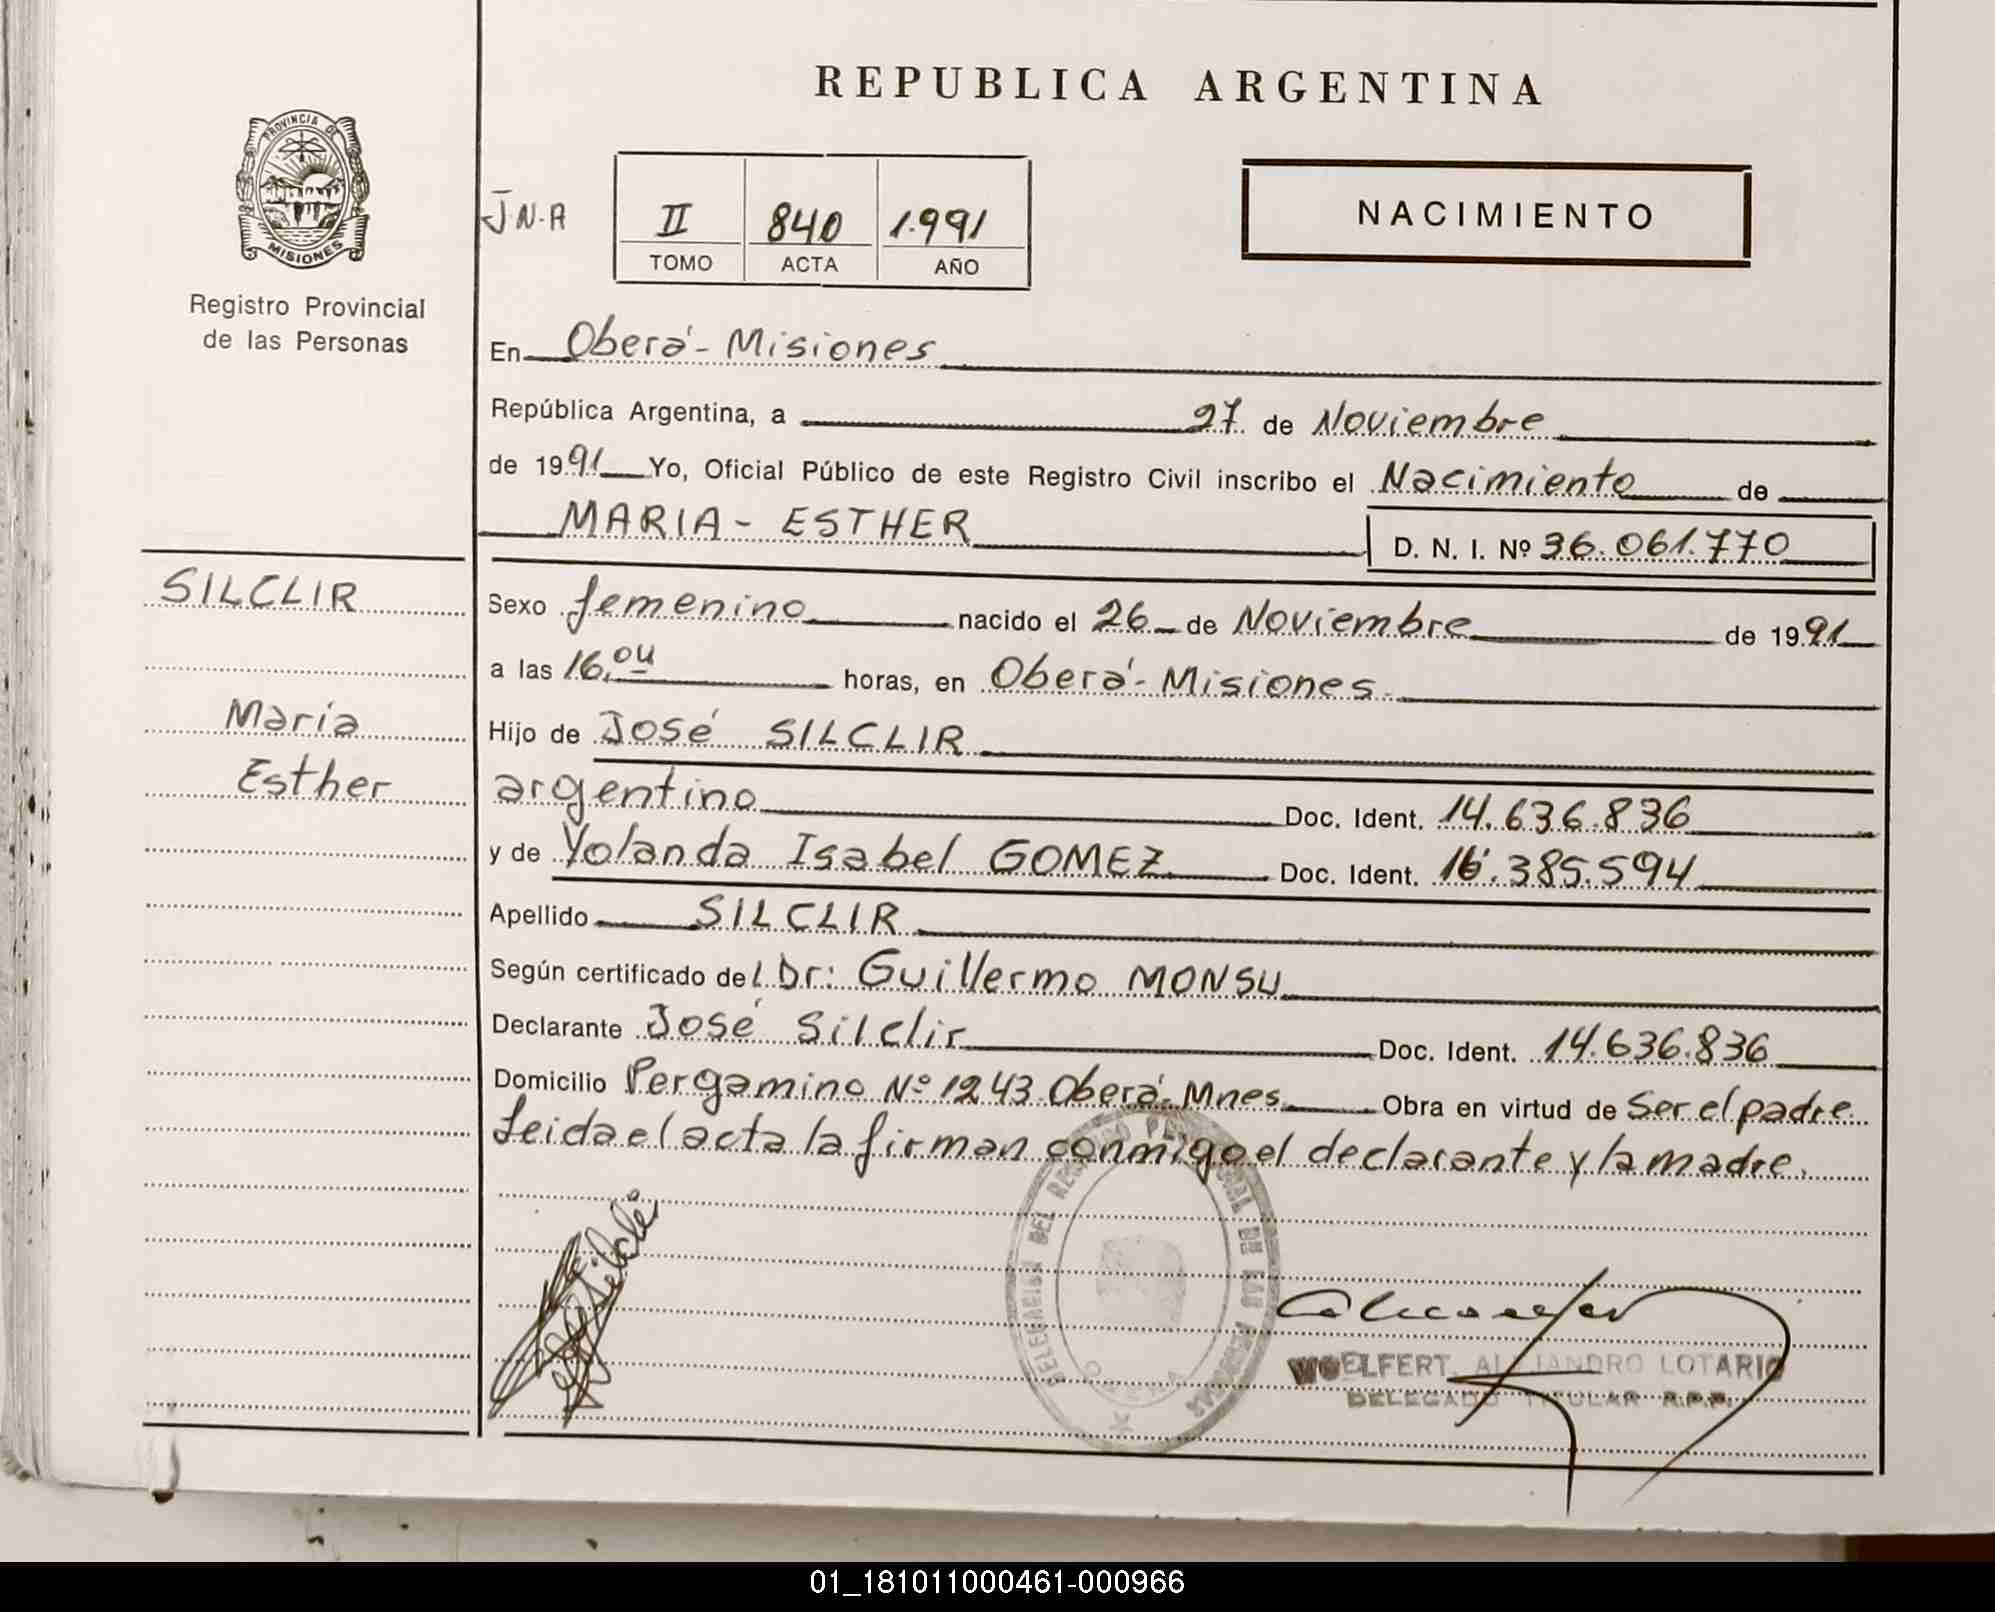 REPUBLICA ARGENTINA
PROVINCIA DE
MISIONES
Registro Provincial
de las Personas
J N.A
II 840 1.991
TOMO ACTA AÑO
NACIMIENTO
En Oberá - Misiones
República Argentina, a 27 de Noviembre
de 1991 Yo, Oficial Público de este Registro Civil inscribo el Nacimiento de
MARIA - ESTHER
D. N. I. Nº 36.061.770
SILCLIR
Maria
Esther
Sexo femenino nacido el 26 de Noviembre de 1991
a las 16,04 horas, en Oberá - Misiones
Hijo de José SILCLIR
argentino Doc. Ident. 14.636.836
y de Yolanda Isabel GOMEZ Doc. Ident. 16.385.594
Apellido SILCLIR
Según certificado del Dr: Guillermo MONSU
Declarante José Silclir Doc. Ident. 14.636.836
Domicilio Pergamino Nº 1243 Oberá - Mnes Obra en virtud de Ser el padre.
Leida el acta la firman conmigo el declarante y la madre.
DELEGACION DEL REGISTRO PROVINCIAL DE LAS PERSONAS
OBERA
WOELFERT, ALEJANDRO LOTARIO
DELEGADO TITULAR R.P.P.
01_181011000461-000966